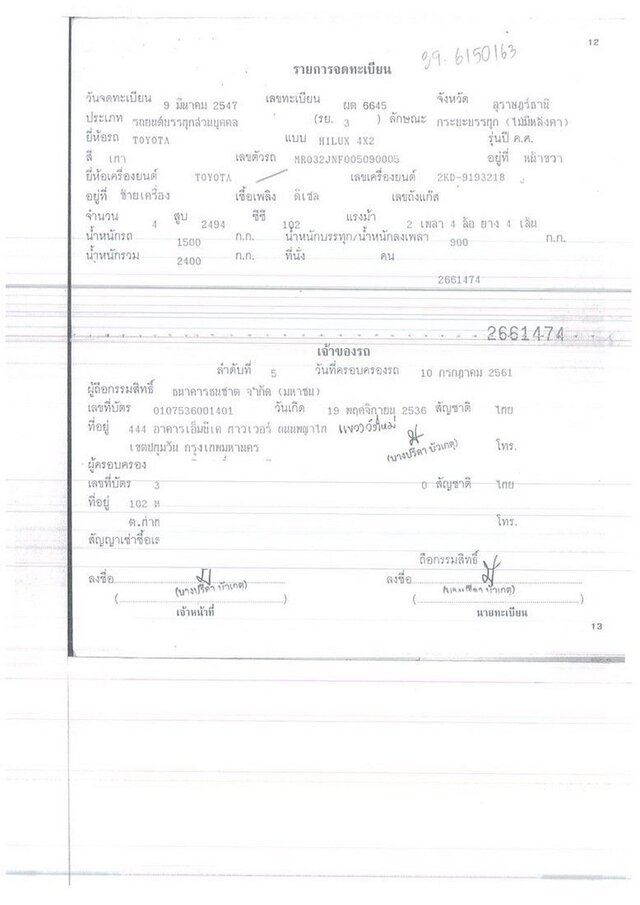 12
39. 6150163
รายการจดทะเบียน
วันจดทะเบียน 9 มีนาคม 2547 เลขทะเบียน ผต 6645 จังหวัด สุราษฎร์ธานี
ประเภท รถยนต์บรรทุกส่วนบุคคล (รย. 3 ) ลักษณะ กระบะบรรทุก (ไม่มีหลังคา)
ยี่ห้อรถ TOYOTA แบบ HILUX 4X2 รุ่นปี ค.ศ.
สี เทา เลขตัวรถ MR032JNF005090005 อยู่ที่ หน้าขวา
ยี่ห้อเครื่องยนต์ TOYOTA เลขเครื่องยนต์ 2KD-9193218
อยู่ที่ ซ้ายเครื่อง เชื้อเพลิง ดีเซล เลขถังแก๊ส
จำนวน 4 สูบ 2494 ซีซี 102 แรงม้า 2 เพลา 4 ล้อ ยาง 4 เส้น
น้ำหนักรถ 1500 ก.ก. น้ำหนักบรรทุก/น้ำหนักลงเพลา 900 ก.ก.
น้ำหนักรวม 2400 ก.ก. ที่นั่ง คน
2661474
2661474
เจ้าของรถ
ลำดับที่ 5 วันที่ครอบครองรถ 10 กรกฎาคม 2561
ผู้ถือกรรมสิทธิ์ ธนาคารธนชาต จำกัด (มหาชน)
เลขที่บัตร 0107536001401 วันเกิด 19 พฤศจิกายน 2536 สัญชาติ ไทย
ที่อยู่ 444 อาคารเอ็มบีเค ทาวเวอร์ ถนนพญาไท แขวงวังใหม่
เขตปทุมวัน กรุงเทพมหานคร (นางปรีดา บัวเกตุ) โทร.
ผู้ครอบครอง
เลขที่บัตร 3 0 สัญชาติ ไทย
ที่อยู่ 102 ห
ต.ท่าก โทร.
สัญญาเช่าซื้อเล
ถือกรรมสิทธิ์
ลงชื่อ ลงชื่อ
(นางปรีดา บัวเกตุ) (นางปรีดา บัวเกตุ)
เจ้าหน้าที่ นายทะเบียน
13